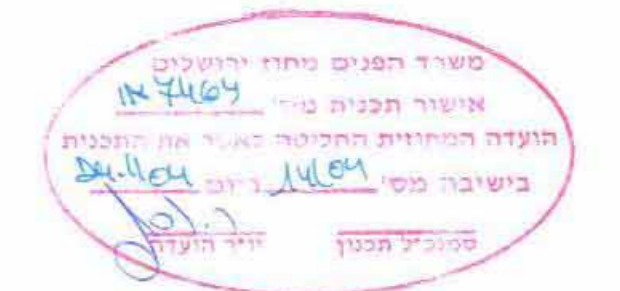 משרד הפנים מחוז ירושלים
אישור תכנית מס' 7464
הועדה המחוזית החליטה לאשר את התכנית
בישיבה מס' 14/04 ביום 24.11.04
סמנכ"ל תכנון יו"ר הועדה